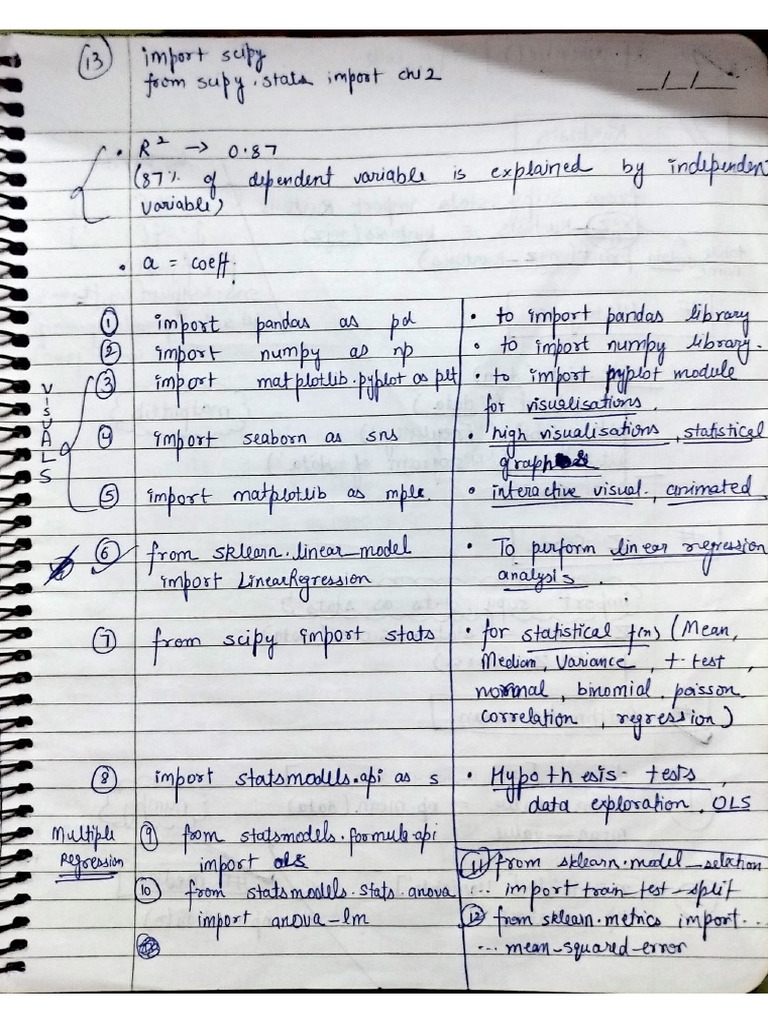 (13) import scipy
from scipy.stats import chi2
__/__/__
• R² → 0.87
(87% of dependent variable is explained by independen
variable)
• a = coeff.
① import pandas as pd
• to import pandas library
② import numpy as np
• to import numpy library.
③ import matplotlib.pyplot as plt
• to import pyplot module
for visualisations.
VISUALS
④ import seaborn as sns
• high visualisations, statistical
graphs
⑤ import matplotlib as mpl.
• interactive visual., animated
⑥ from sklearn.linear_model
import LinearRegression
• To perform linear regression
analysis.
⑦ from scipy import stats
• for statistical f(n) (Mean,
Median, Variance, t-test,
normal, binomial, poisson.
correlation, regression)
⑧ import statsmodels.api as s
• Hypothesis tests,
data exploration, OLS
Multiple
Regression
⑨ from statsmodels.formula.api
import ols
⑩ from statsmodels.stats.anova
import anova-lm
⑪ from sklearn.model_selation
... import train-test-split
⑫ from sklearn.metrics import...
... mean-squared-error